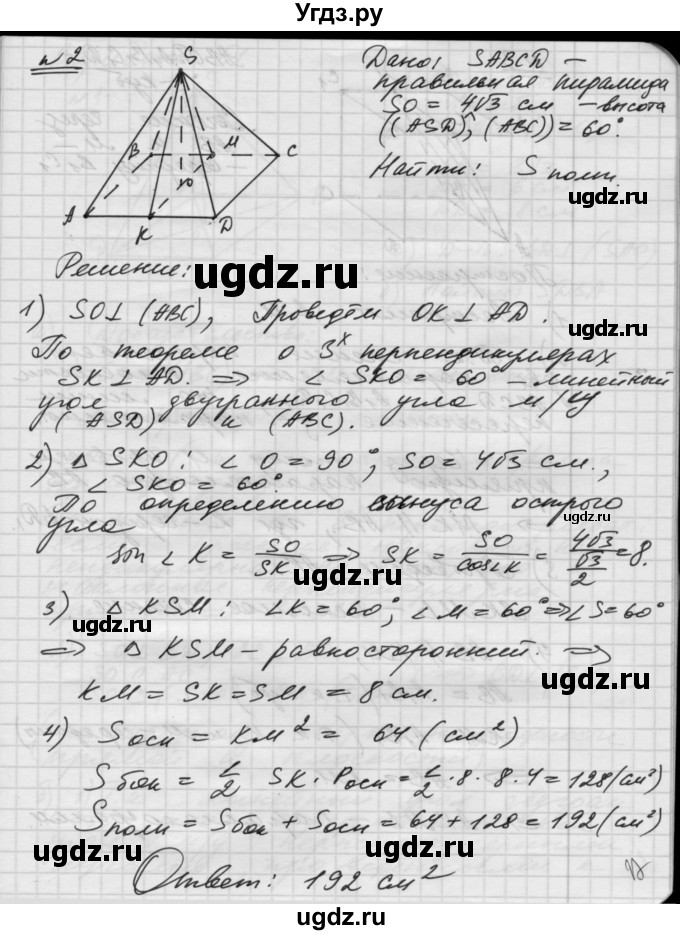 Угдз.ру
n2
S
B
M
C
O
A
K
D
Дано: SABCD –
правильная пирамида
SO = 4√3 см – высота
((ASD)^,(ABC)) = 60°.
Найти: S полн.
ugdz.ru
ugdz.ru
ugdz.ru
Решение:
ugdz.ru
1) SO ⊥ (ABC), Проведём OK ⊥ AD.
По теореме о 3х перпендикулярах
SK ⊥ AD. ⇒ ∠ SKO = 60° – линейный
угол двугранного угла м/ду
(ASD) и (ABC).
2) △ SKO: ∠ O = 90°, SO = 4√3 см.,
∠ SKO = 60°.
По определению синуса острого
угла
ugdz.ru
sin ∠ K = SO/SK ⇒ SK = SO/cos∠K = 4√3/(√3/2) = 8.
ugdz.ru
3) △ KSM: ∠K = 60°, ∠M = 60° ⇒ ∠S = 60°
ugdz.ru
⇒ △ KSM – равносторонний. ⇒
KM = SK = SM = 8 см.
ugdz.ru
4) S осн = KM² = 64 (см²)
ugdz.ru
S бок = 1/2 SK · P осн = 1/2 · 8 · 8 · 4 = 128 (см²)
S полн = S бок + S осн = 64 + 128 = 192 (см²)
ugdz.ru
ugdz.ru
Ответ: 192 см²
ugdz.ru